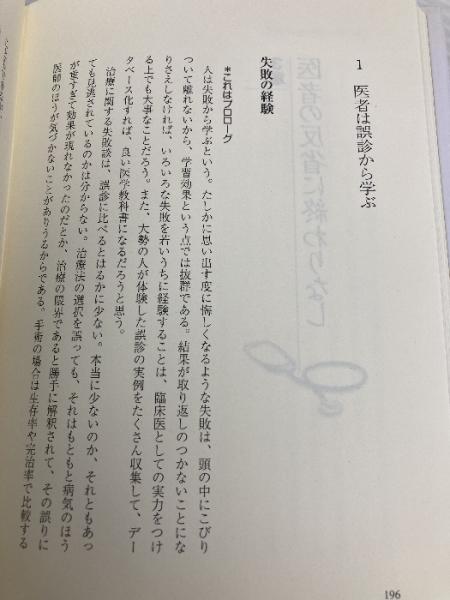 1 医者は誤診から学ぶ
失敗の経験
*これはプロローグ
人は失敗から学ぶという。たしかに思い出す度に悔しくなるような失敗は、頭の中にこびり
ついて離れないから、学習効果という点では抜群である。結果が取り返しのつかないことにな
りさえしなければ、いろいろな失敗を若いうちに経験することは、臨床医としての実力をつけ
る上でも大事なことだろう。また、大勢の人が体験した誤診の実例をたくさん収集して、デー
タベース化すれば、良い医学教科書になるだろうと思う。
治療に関する失敗談は、誤診に比べるとはるかに少ない。本当に少ないのか、それともあっ
ても見逃されているのかは分からない。治療法の選択を誤っても、それはもともと病気のほう
が重すぎて効果が現れなかったのだとか、治療の限界であると勝手に解釈されて、その誤りに
医師のほうが気づかないことがありうるからである。手術の場合は生存率や完治率で比較する
196
医者の反省に終わりなし